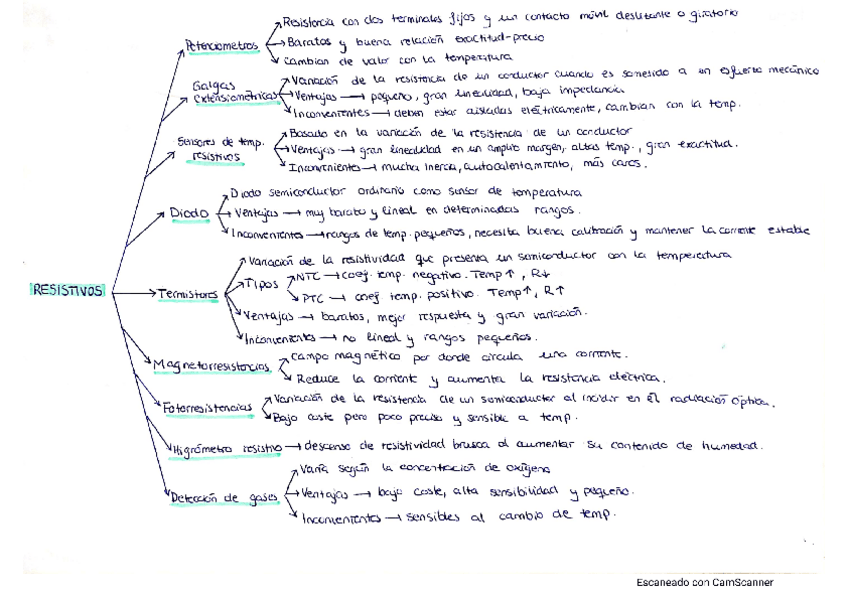 Potenciometros
Resistencia con dos terminales fijos y un contacto móvil deslizante o giratorio
Baratos y buena relación exactitud-precio
Cambian de valor con la temperatura
Galgas extensiométricas
Variación de la resistencia de un conductor cuando es sometido a un esfuerzo mecánico
Ventajas → pequeño, gran linealidad, baja impedancia
Inconvenientes → deben estar aisladas eléctricamente, cambian con la temp.
Sensores de temp. resistivos
Basado en la variación de la resistencia de un conductor
Ventajas → gran linealidad en un amplio margen, altas temp., gran exactitud.
Inconvenientes → mucha inercia, autocalentamiento, más caros.
Diodo
Diodo semiconductor ordinario como sensor de temperatura
Ventajas → muy barato y lineal en determinados rangos.
Inconvenientes → rangos de temp. pequeños, necesita buena calibración y mantener la corriente estable
RESISTIVOS
Termistores
Variación de la resistividad que presenta un semiconductor con la temperatura
Tipos
NTC → coef. temp. negativo. Temp↑, R↓
PTC → coef temp. positivo. Temp↑, R↑
Ventajas → baratos, mejor respuesta y gran variación.
Inconvenientes → no lineal y rangos pequeños.
Magnetorresistencias
Campo magnético por donde circula una corriente.
Reduce la corriente y aumenta la resistencia eléctrica.
Fotorresistencias
Variación de la resistencia de un semiconductor al incidir en él radiación óptica.
Bajo coste pero poco preciso y sensible a temp.
Higrómetro resistivo → descenso de resistividad brusca al aumentar su contenido de humedad.
Detección de gases
Varía según la concentración de oxígeno
Ventajas → bajo coste, alta sensibilidad y pequeño.
Inconvenientes → sensibles al cambio de temp.
Escaneado con CamScanner